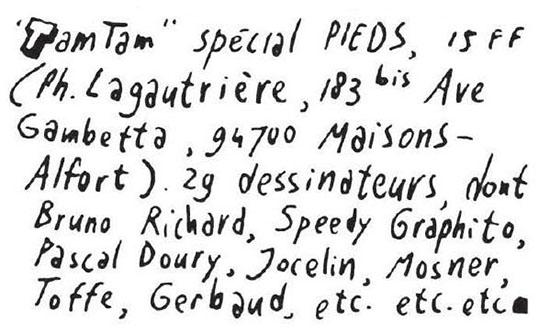 "TamTam" spécial PIEDS, 15 FF
(Ph. Lagautrière, 183 bis Ave
Gambetta, 94700 Maisons-
Alfort). 29 dessinateurs, dont
Bruno Richard, Speedy Graphito,
Pascal Doury, Jocelin, Mosner,
Toffe, Gerbaud, etc. etc. etc